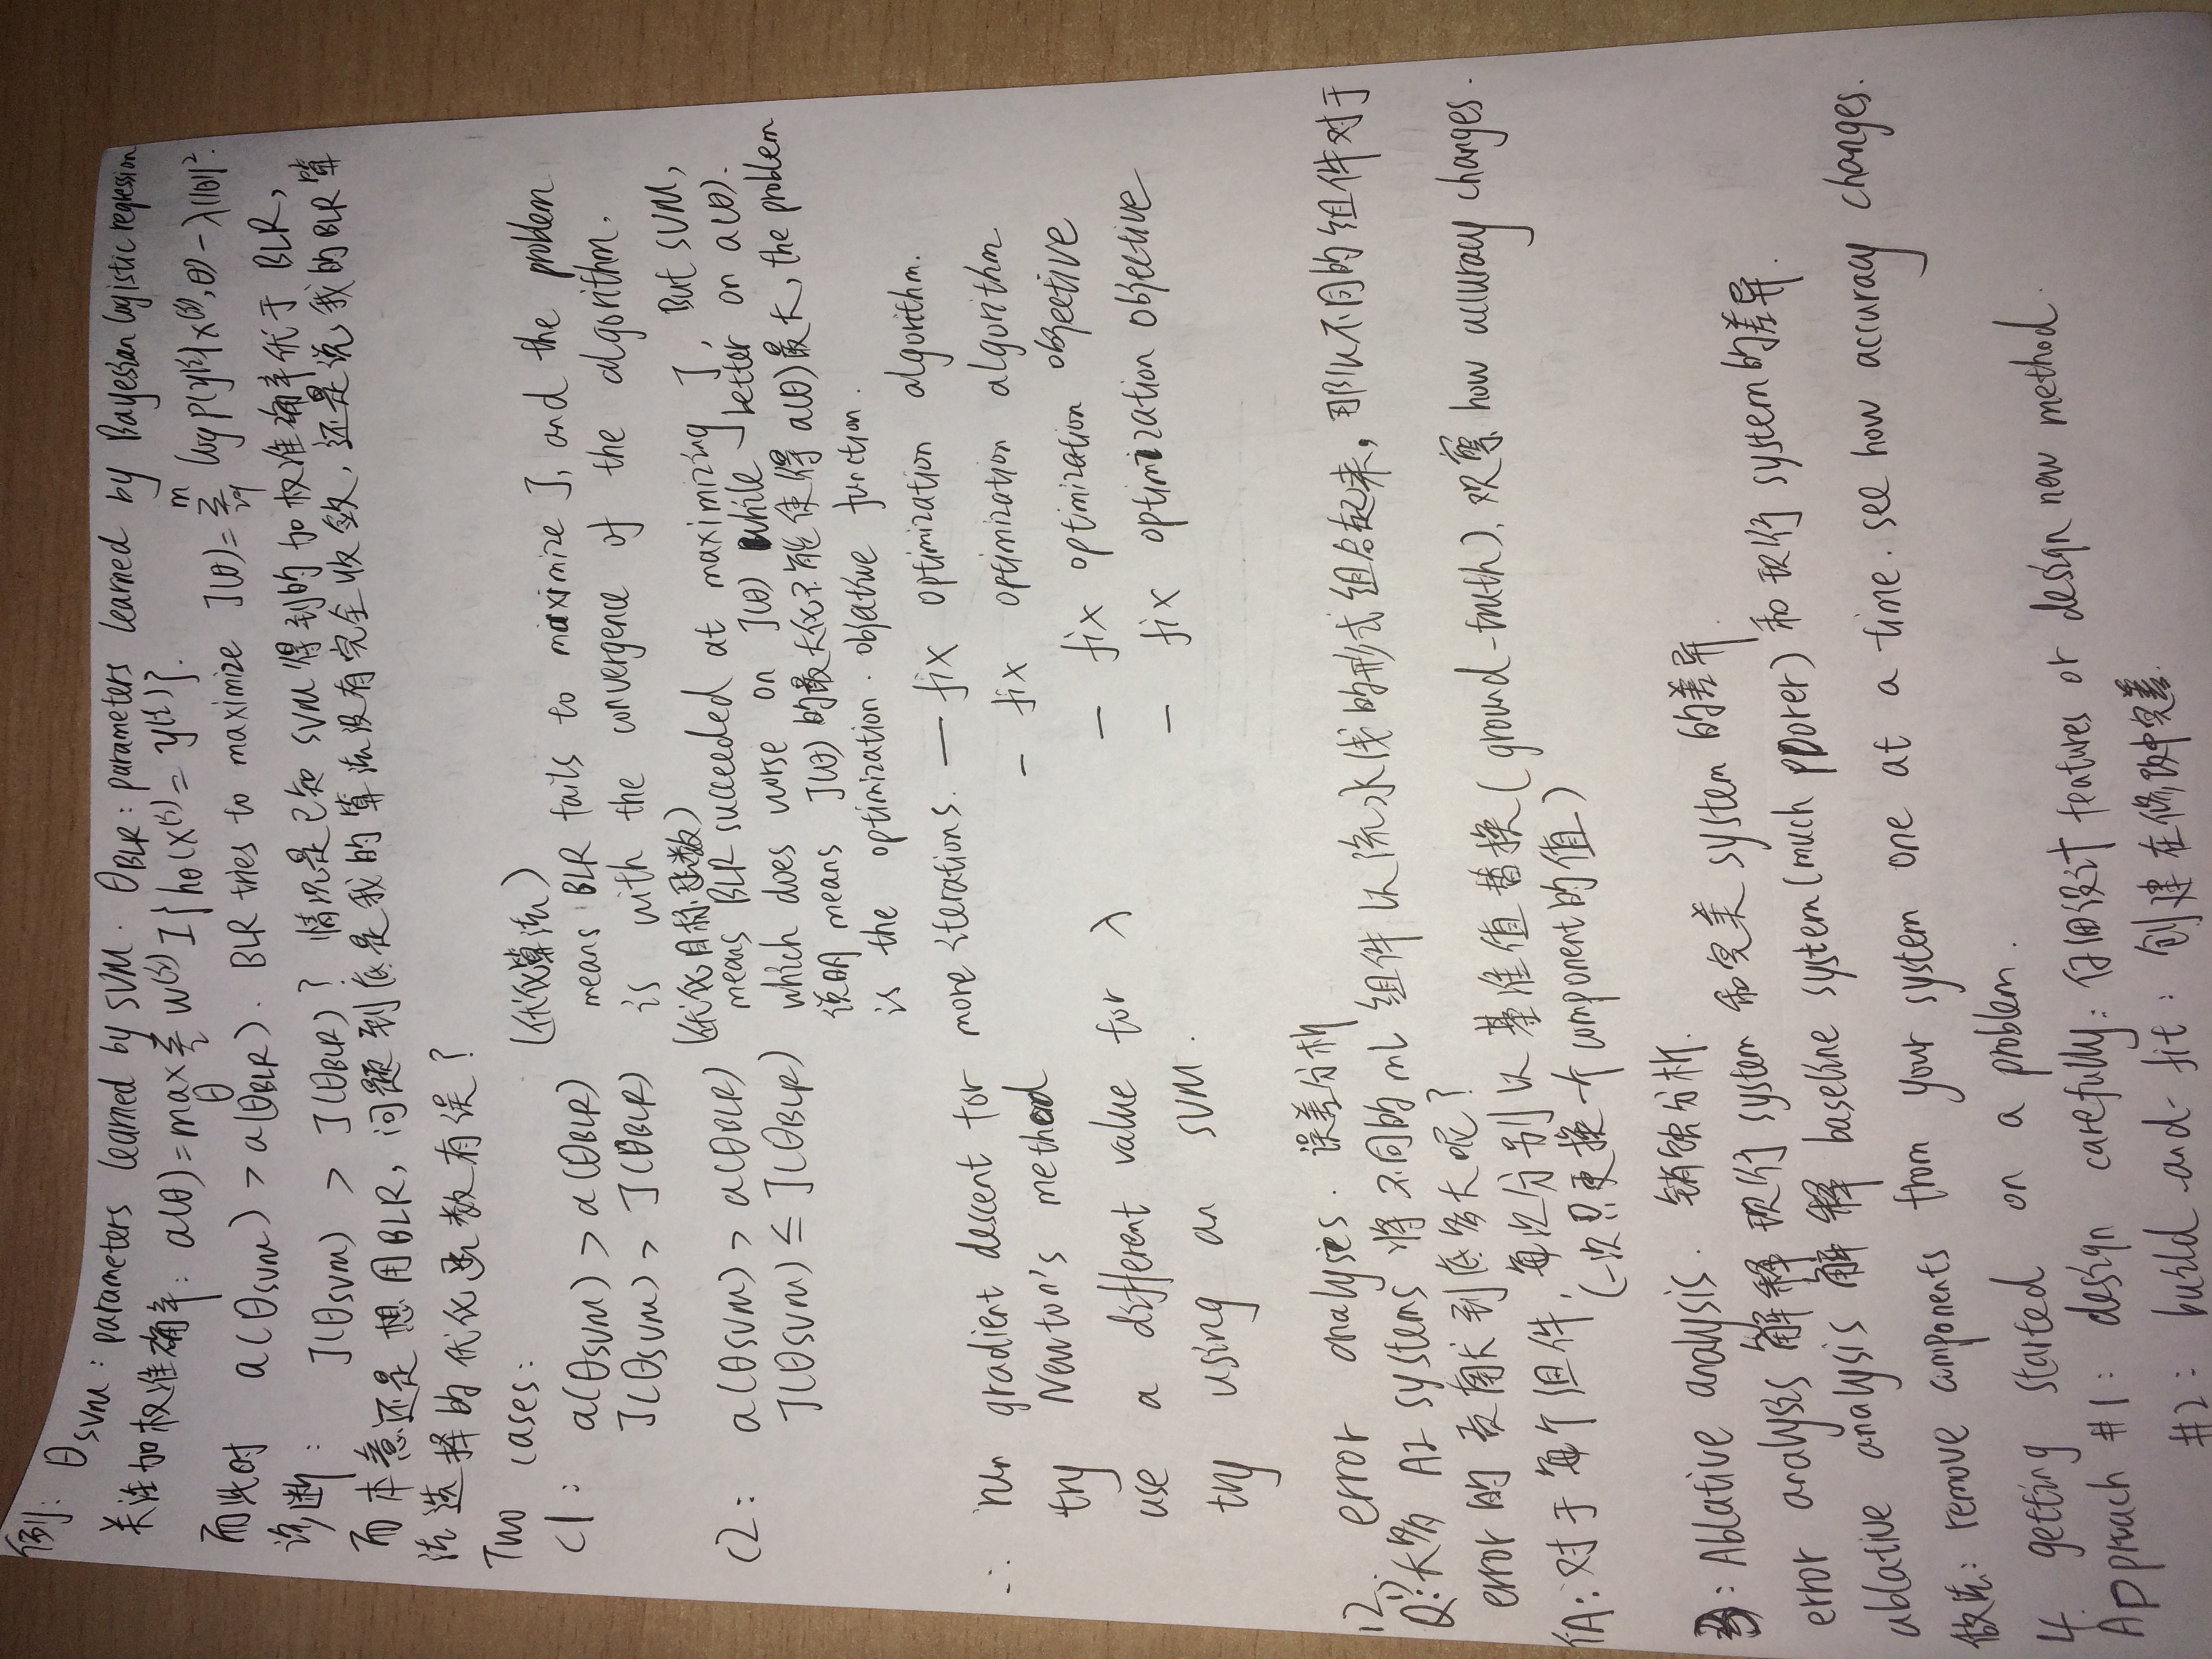 例: θSVM: parameters learned by SVM. θBLR: parameters learned by Bayesian logistic regression
关注加权准确率: a(θ)=max_θ Σ_i w⁽ⁱ⁾ I{hθ(x⁽ⁱ⁾= y⁽ⁱ⁾}.
而此时 a(θSVM) > a(θBLR). BLR tries to maximize J(θ)= Σ_{i=1}^m log p(y⁽ⁱ⁾|x⁽ⁱ⁾,θ) - λ||θ||².
诊断: J(θSVM) > J(θBLR)? 情况是已知 SVM得到的加权准确率优于 BLR,
而本意还是想用BLR, 问题到底是我的算法没有完全收敛, 还是说, 我的BLR算
法选择的优化函数有误?
Two cases:
C1: a(θSVM) > a(θBLR) (优化算法) means BLR fails to maximize J, and the problem
J(θSVM) > J(θBLR) is with the convergence of the algorithm.
C2: a(θSVM) > a(θBLR) (优化目标函数) means BLR succeeded at maximizing J, But SVM,
J(θSVM) ≤ J(θBLR) which does worse on J(θ) while better on a(θ).
说明 means J(θ)的最大化不能使得 a(θ)最大, the problem
is the optimization. objective function.
∴ run gradient descent for more iterations. — fix optimization algorithm.
try Newton's method - fix optimization algorithm
use a different value for λ — fix optimization objective
try using an SVM. — fix optimization objective
12. error analyses. 误差分析
Q:1) 大多 AI systems 将不同的 ML 组件以流水线的形式组合起来, 那么不同的组件对于
error的贡献到底多大呢?
A: 对于每个组件, 每次分别以基准值替换(ground-truth), 观察 how accuracy changes.
(一次只更换一个component的值)
3: Ablative analysis. 销蚀分析.
error analysis 解释现行 system 和完美 system 的差异.
ablative analysis 解释 baseline system(much poorer) 和现行 system的差异.
做法: remove components from your system one at a time. see how accuracy changes.
4. getting started on a problem.
Approach #1: design carefully: 仔细设计 features or design new method.
#2: build-and-fit: 创建在修改中完善.